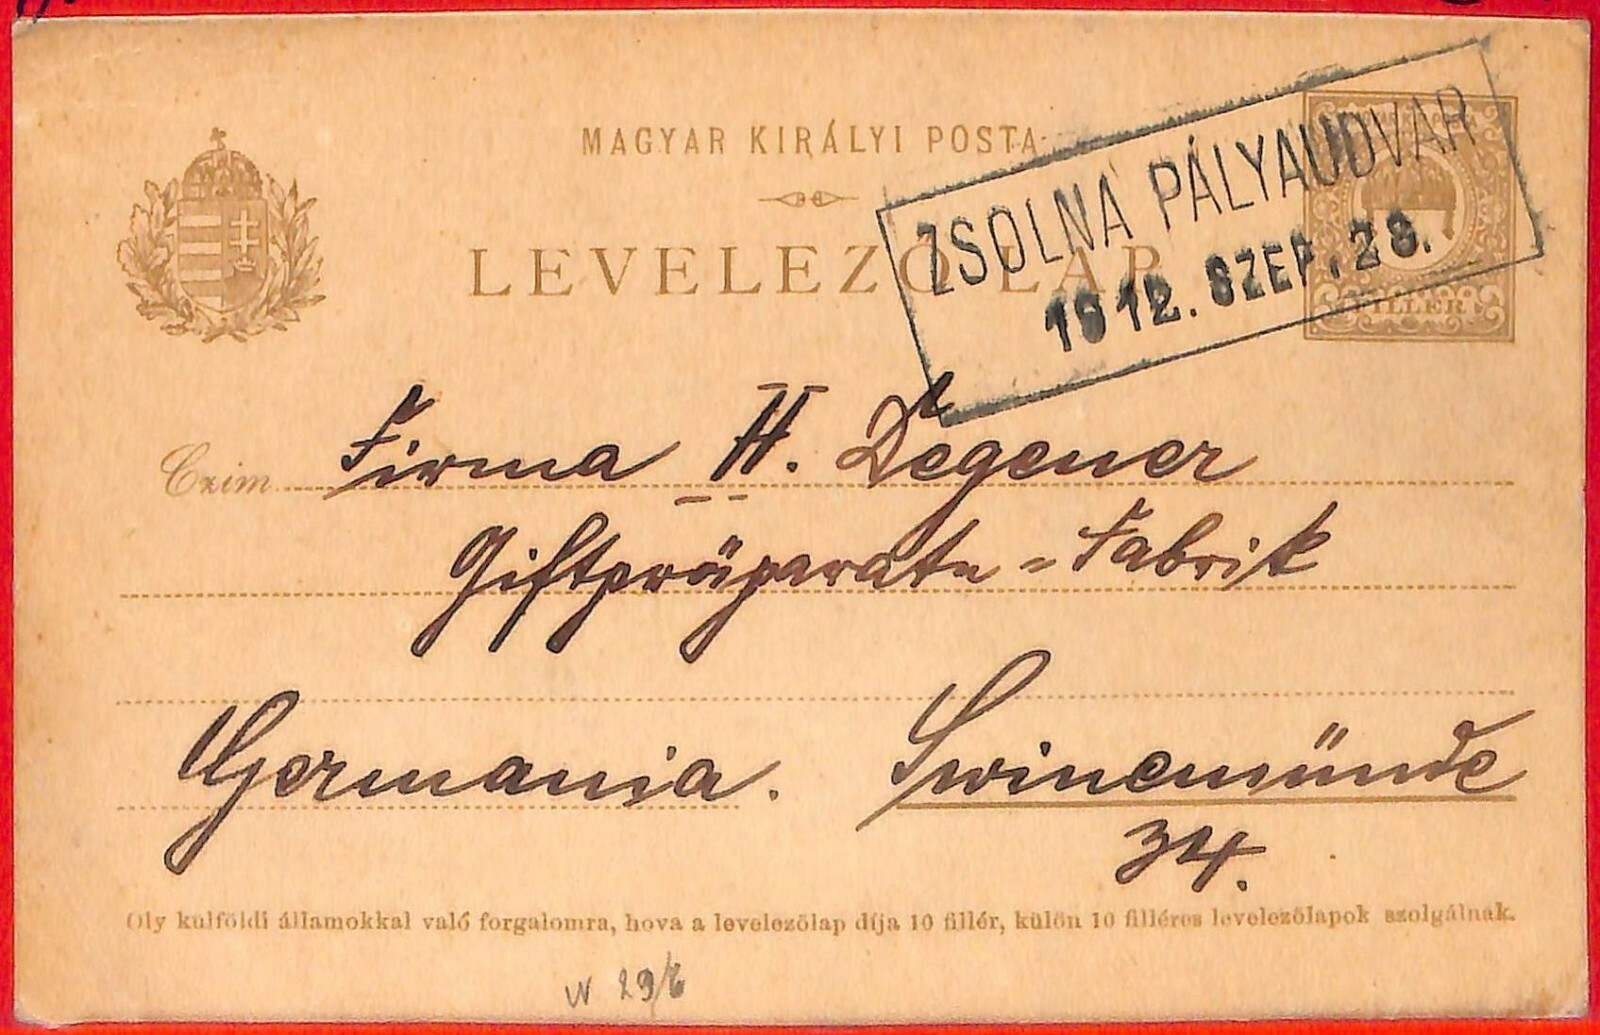 MAGYAR KIRÁLYI POSTA
LEVELEZŐ LAP
ZSOLNA PÁLYAUDVAR
1912. SZEP. 28.
FILLÉR
Czim Firma H. Degener
Giftpräparate = Fabrik
Germania. Swinemünde
34.
Oly külföldi államokkal való forgalomra, hova a levelezőlap díja 10 fillér, külön 10 filléres levelezőlapok szolgálnak.